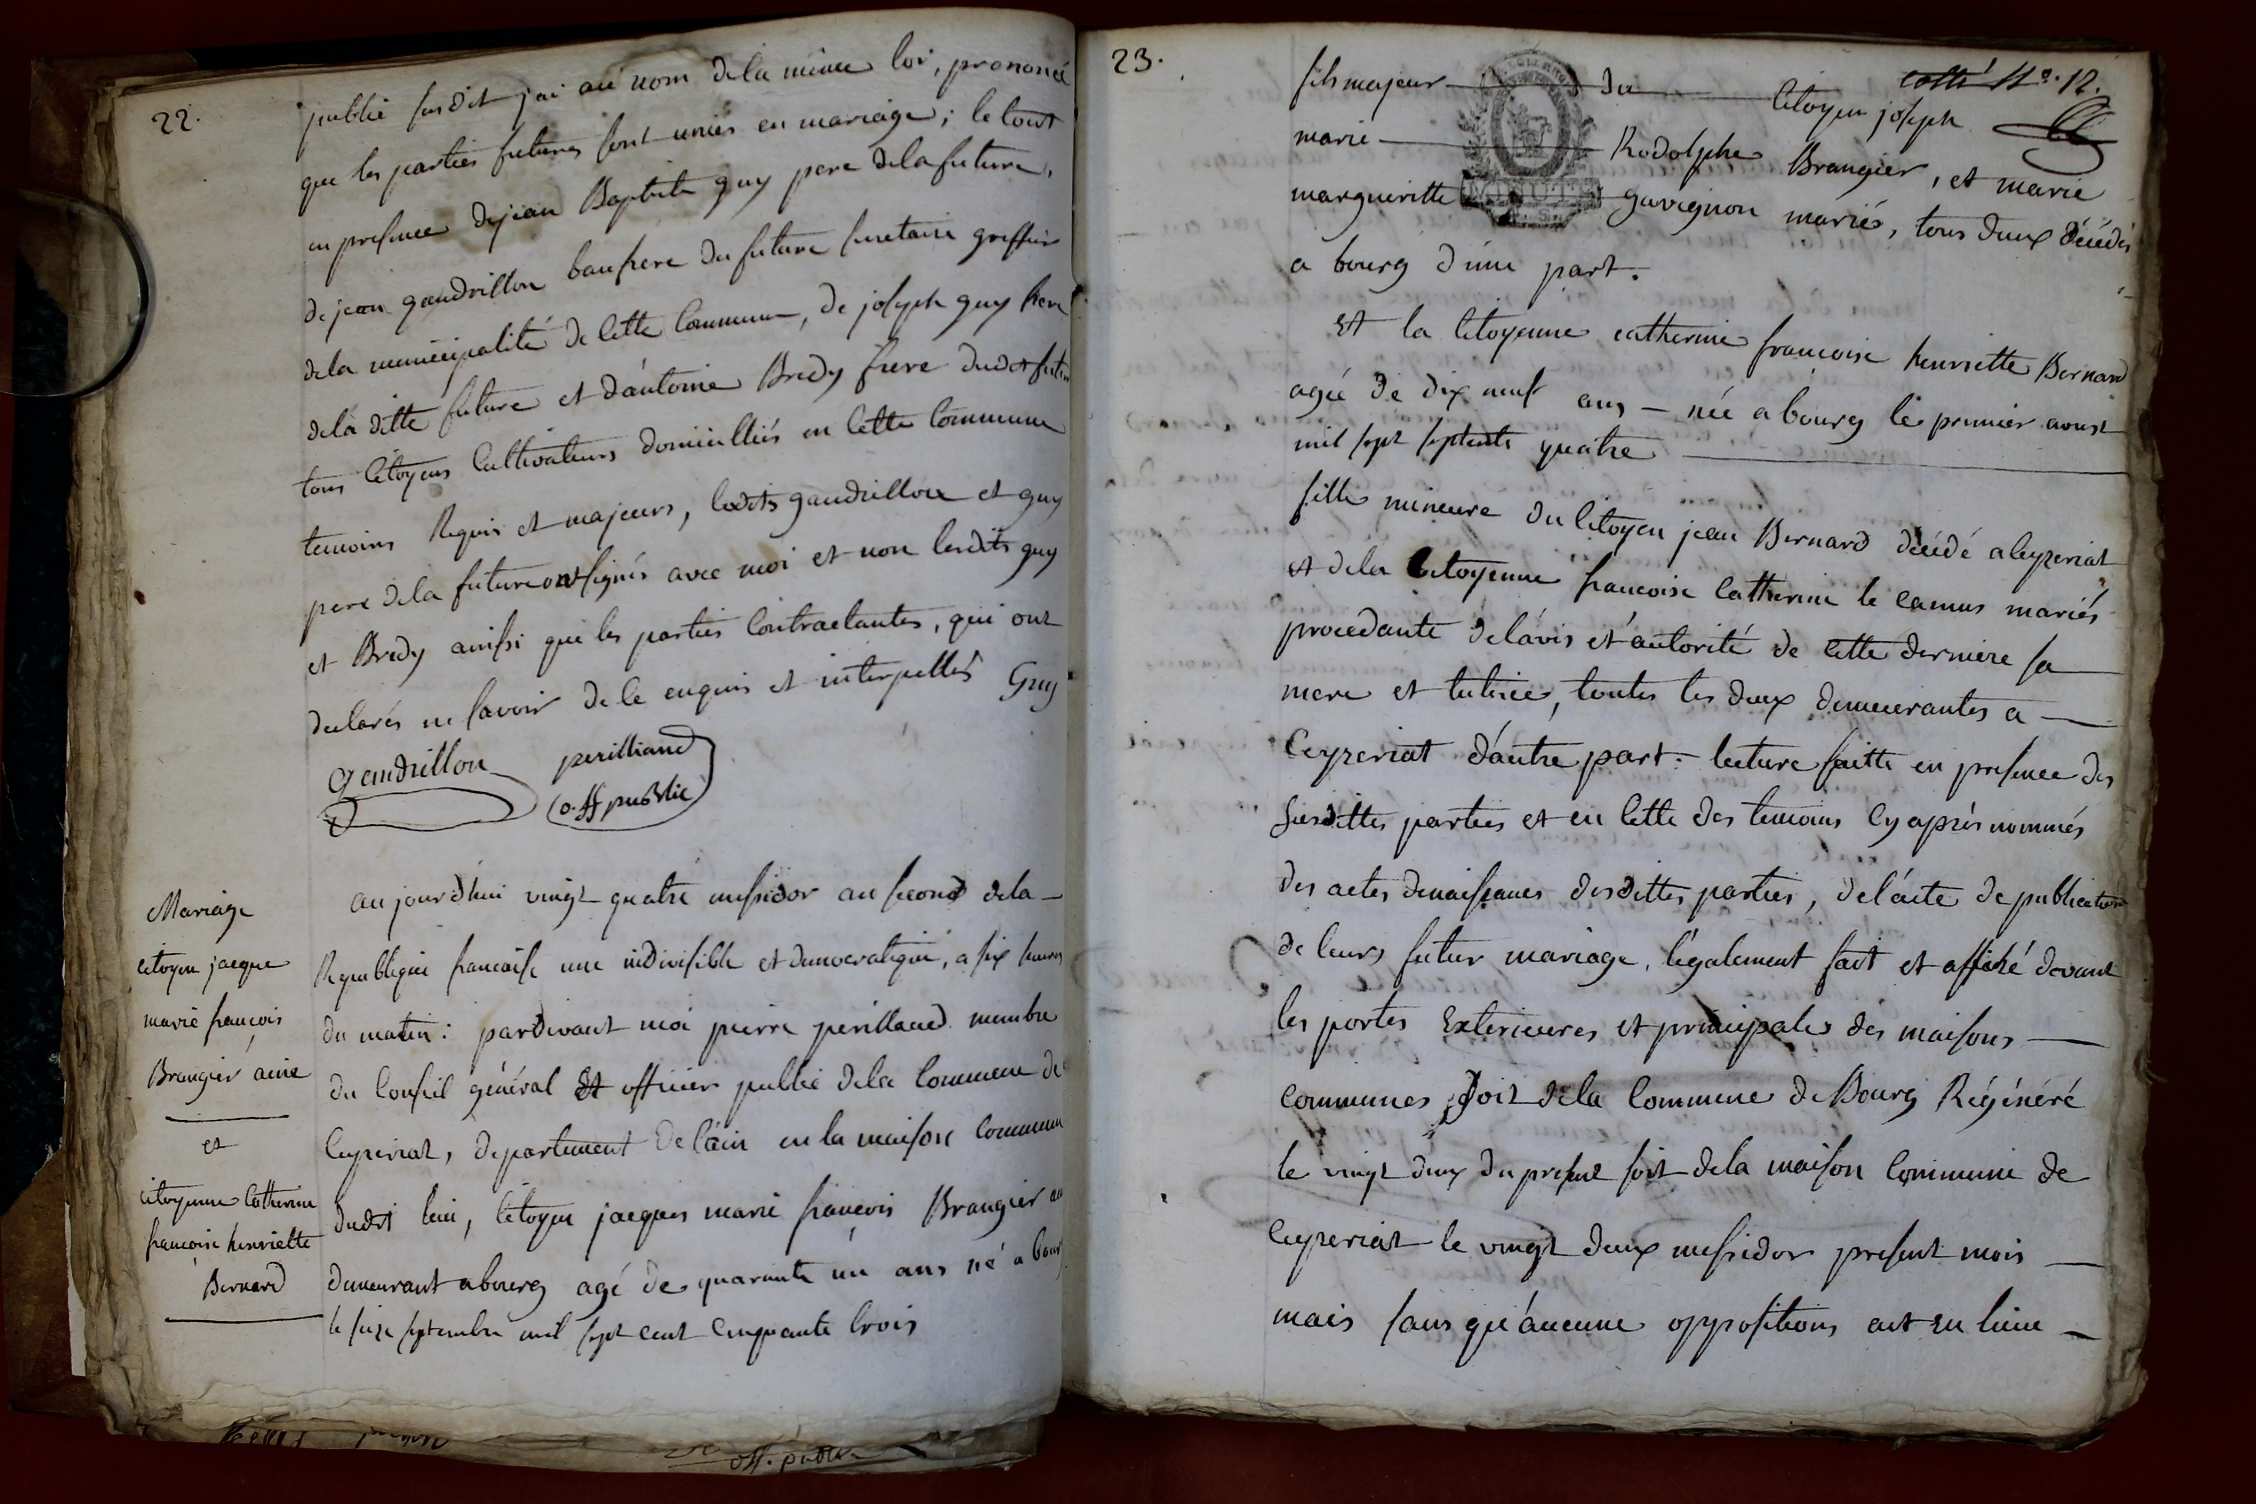 22.
publié susdit j'ai au nom dela même loi, prononcé
que les parties futures sont unies en mariage; le tout
en presence de jean Baptiste guy pere dela future,
de jean gaudrillon baufrere du future secretaire greffier
dela municipalité de cette Commune, de joseph guy frere
dela ditte future et d'antoine Bredy frere dudot futur
tous Citoyens Cultivateurs domicilliés en cette Commune
temoins Requis et majeurs, lesdits gaudrillon et guy
pere dela future ont signés avec moi et non lesdits guy
et Bredy ainssi que les parties Contractantes, qui ont
declarés ne savoir de le enquis et interpellés Guy
Gaudrillon perilliand
off public
Mariage
citoyen jacque
marie françois
Brangier ainé
et
citoyenne Catherine
francoise henriette
Bernard
aujourd'hui vingt quatre messidor an second dela
Republique francaise une indivisible et democratique, a six heures
du matin: pardevant moi pierre perilland membre
du Conseil général Et officier public dela Commune de
Ceyzeriat, departement de l'ain en la maison Commune
dudit lieu, Citoyen jacques marie francois Brangier
demeurant a bourg agé de quarante un ans né a bourg
le seize septembre mil sept cent cinquante trois
23.
cotté No. 12.
fils majeur du Citoyen joseph
marie Rodolphe Brangier, et marie
margueritte gavignon mariés, tous deux décédés
a bourg d'une part.
Et la Citoyenne catherine francoise henriette Bernard
agée de dix neuf ans née a bourg le premier aoust
mil sept septente quatre
fille mineure du Citoyen jean Bernard décédé a Ceyzeriat
et dela Citoyenne francoise Catherine le camus mariés
procedante de l'avis et autorité de cette derniere sa
mere et tutrice, toutes les deux demeurantes a
Ceyzeriat d'autre part. lecture faitte en presence des
susdittes parties et en cette des temoins Cy après nommés
des actes denaissances desdittes parties, de l'acte de publication
de leurs futur mariage, légalement fait et affiché devant
les portes Exterieures et principales des maisons
communes soit dela Commune de Bourg Régénéré
le vingt deux du present soit dela maison Commune de
Ceyzeriat le vingt deux messidor present mois
mais sans qu'aucune oppositions ait eu lieu
off. public